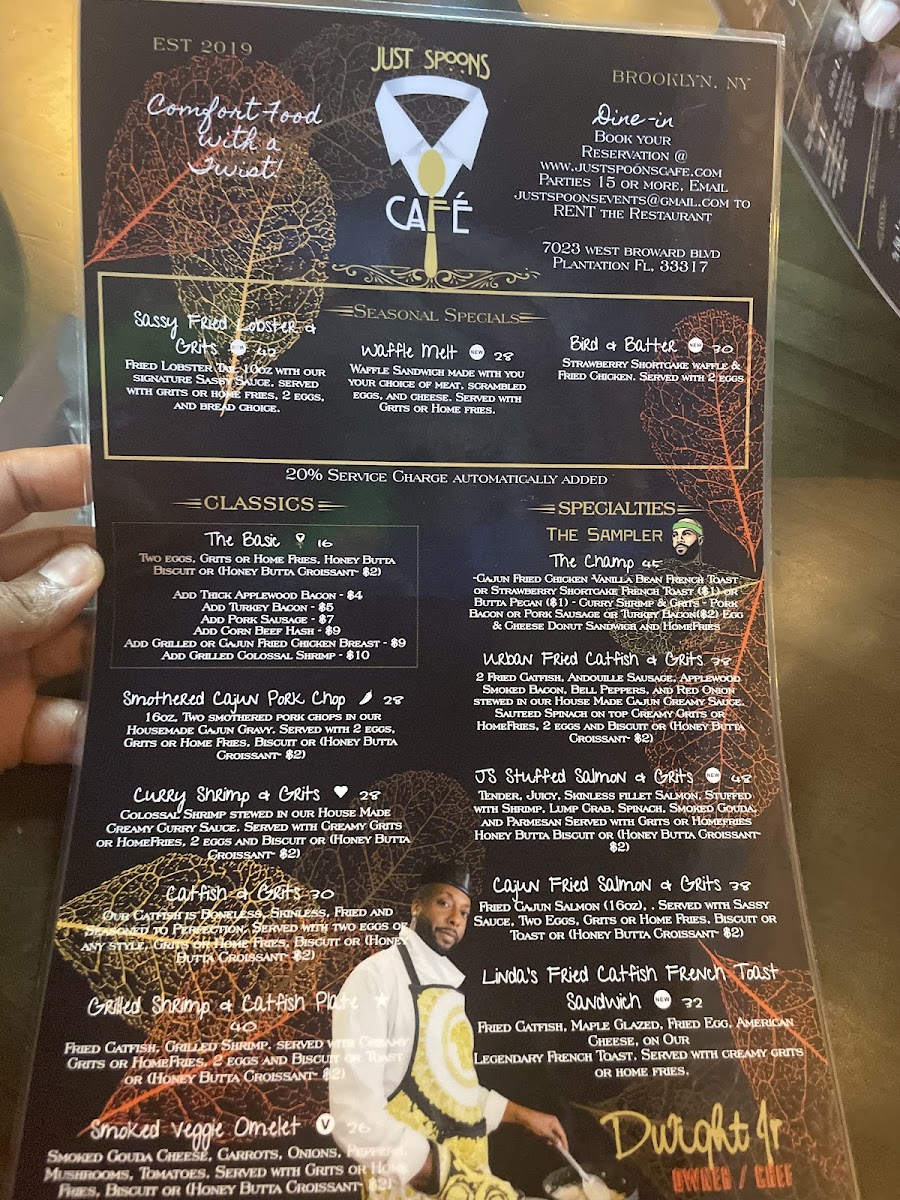 EST 2019
JUST SPOONS
CAFÉ
BROOKLYN, NY
Comfort Food
with a
Twist!
Dine-in
Book your
Reservation @
www.justspoonscafe.com
Parties 15 or more, Email
justspoonsevents@gmail.com to
RENT the Restaurant
7023 west broward blvd
Plantation Fl, 33317
Seasonal Specials
Sassy Fried Lobster &
Grits NEW 42
Fried Lobster Tail 10oz with our
signature Sassy Sauce. served
with grits or home fries, 2 eggs,
and bread choice.
Waffle Melt NEW 28
Waffle Sandwich made with you
your choice of meat, scrambled
eggs, and cheese. Served with
Grits or Home fries.
Bird & Batter NEW 30
Strawberry Shortcake waffle &
Fried Chicken. Served with 2 eggs
20% Service Charge automatically added
CLASSICS
The Basic 16
Two eggs, Grits or Home Fries, Honey Butta
Biscuit or (Honey Butta Croissant- $2)
Add Thick Applewood Bacon - $4
Add Turkey Bacon - $5
Add Pork Sausage - $7
Add Corn Beef Hash - $9
Add Grilled or Cajun Fried Chicken Breast - $9
Add Grilled Colossal Shrimp - $10
Smothered Cajun Pork Chop 28
16oz, Two smothered pork chops in our
Housemade Cajun Gravy. Served with 2 eggs,
Grits or Home Fries, Biscuit or (Honey Butta
Croissant- $2)
Curry Shrimp & Grits 28
Colossal Shrimp stewed in our House Made
Creamy Curry Sauce. Served with Creamy Grits
or HomeFries, 2 eggs and Biscuit or (Honey Butta
Croissant- $2)
Catfish & Grits 30
Our Catfish is Boneless, Skinless, Fried and
Seasoned to Perfection. Served with two eggs of
any style, Grits or Home Fries, Biscuit or (Honey
Butta Croissant- $2)
Grilled Shrimp & Catfish Plate
40
Fried Catfish, Grilled Shrimp, served with Creamy
Grits or HomeFries, 2 eggs and Biscuit or Toast
or (Honey Butta Croissant- $2)
Smoked Veggie Omelet V 26
Smoked Gouda Cheese, Carrots, Onions, Peppers,
Mushrooms, Tomatoes. Served with Grits or Home
Fries, Biscuit or (Honey Butta Croissant $2)
SPECIALTIES
The Sampler
The Champ 45
-Cajun Fried Chicken -Vanilla Bean French Toast
or Strawberry Shortcake French Toast ($1) or
Butta Pecan ($1) - Curry Shrimp & Grits - Pork
Bacon or Pork Sausage or Turkey Bacon($2) -Egg
& Cheese Donut Sandwich and HomeFries
Urban Fried Catfish & Grits 38
2 Fried Catfish, Andouille Sausage, Applewood
Smoked Bacon, Bell Peppers, and Red Onion
stewed in our House Made Cajun Creamy Sauce.
Sauteed Spinach on top Creamy Grits or
HomeFries, 2 eggs and Biscuit or (Honey Butta
Croissant- $2)
JS Stuffed Salmon & Grits NEW 48
Tender, Juicy, Skinless fillet Salmon, Stuffed
with Shrimp, Lump Crab, Spinach, Smoked Gouda,
and Parmesan Served with Grits or Homefries
Honey Butta Biscuit or (Honey Butta Croissant-
$2)
Cajun Fried Salmon & Grits 38
Fried Cajun Salmon (16oz), . Served with Sassy
Sauce, Two Eggs, Grits or Home Fries, Biscuit or
Toast or (Honey Butta Croissant- $2)
Linda's Fried Catfish French Toast
Sandwich NEW 32
Fried Catfish, Maple Glazed, Fried Egg, American
Cheese, on Our
Legendary French Toast. Served with creamy grits
or home fries.
Dwight Jr
OWNER / CHEF